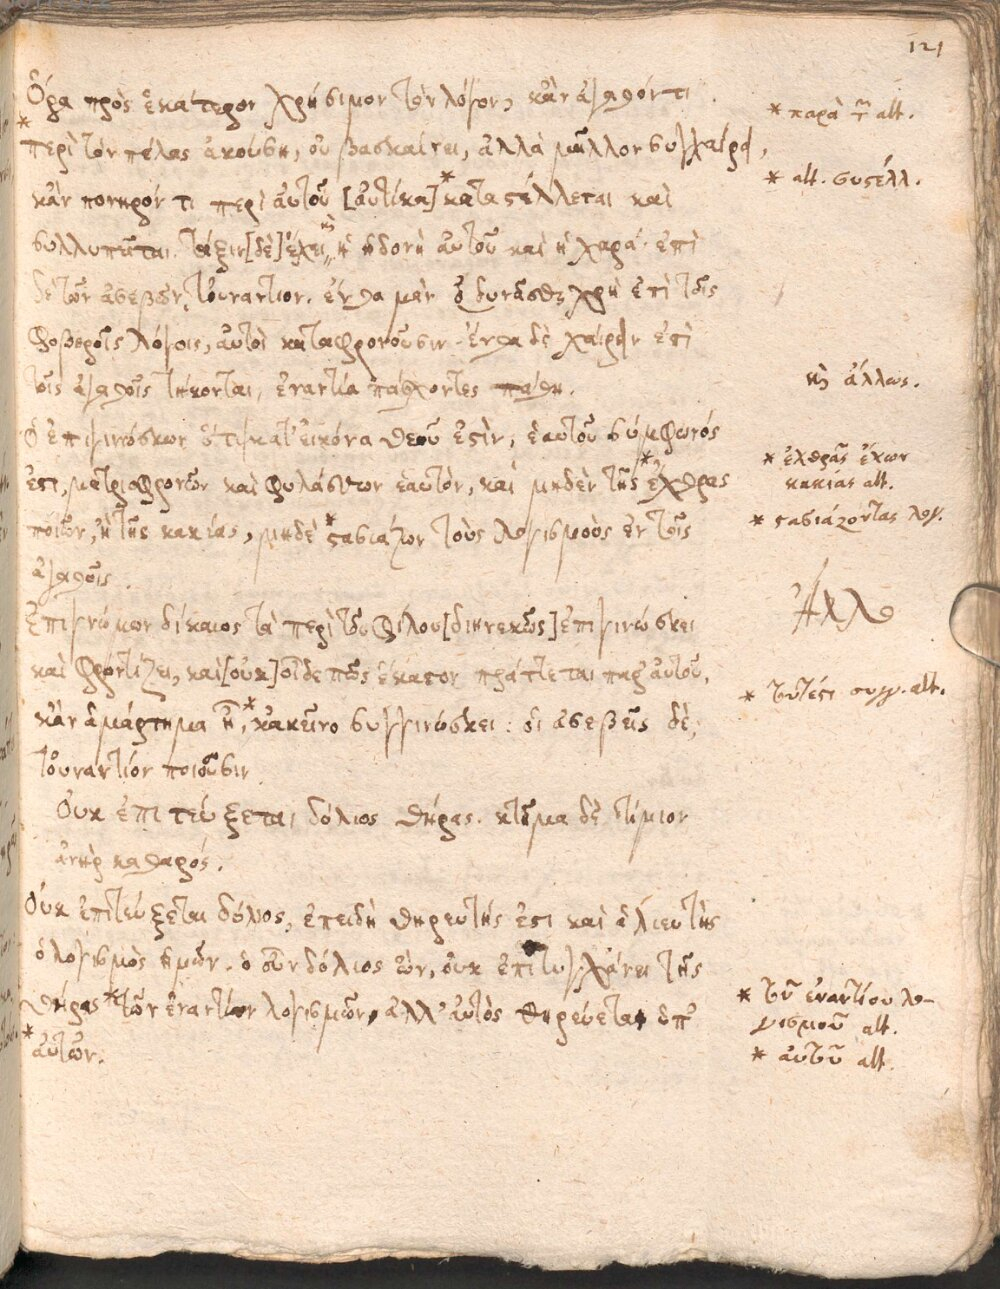 121
Ὅρα πρὸς ἑκάτερον χρήσιμον τὸν λόγον, κἂν ἀγαθόν τι
* περὶ τὸν πέλας ἀκούση, οὐ βασκαίνει, ἀλλὰ μᾶλλον συγχαίρει,
κἂν πονηρόν τι περὶ αὐτοῦ [αὐτίκα] * καταστέλλεται καὶ
συλλυπεῖται. τάξιν [δὲ] ἔχει καὶ ἡ ἡδονὴ αὐτοῦ καὶ ἡ χαρά· ἐπὶ
δὲ τῶν ἀσεβῶν, τοὐναντίον. ἔνθα μὲν ὀδυνᾶσθαι χρὴ ἐπὶ τοῖς
φοβεροῖς λόγοις, αὐτοὶ καταφρονοῦσιν· ἔνθα δὲ χαίρειν ἐπὶ
τοῖς ἀγαθοῖς τήκονται, ἐναντία πάσχοντες πάθη.
ὁ ἐπιγινώσκων ὅτι κατ' εἰκόνα θεοῦ ἐστὶν, ἑαυτοῦ σύμφωνός
ἐστι, μετριοφρονῶν καὶ φυλάσσων ἑαυτὸν, καὶ μηδὲν τῆς * ἔχθρας
ποιῶν, ἢ τῆς κακίας, μηδὲ * στασιάζων τοὺς λογισμοὺς ἐν τοῖς
ἀγαθοῖς.
Ἐπιγνώμων δίκαιος τὰ περὶ τοῦ φίλου [διηνεκῶς] ἐπιγινώσκει
καὶ φροντίζει, καὶ [οὐκ] οἶδε πῶς ἕκαστον πράττεται παρ' αὐτοῦ,
κἂν ἁμάρτημα ᾖ, * κἀκεῖνο συγγινώσκει· οἱ ἀσεβεῖς δὲ,
τοὐναντίον ποιοῦσιν.
Οὐκ ἐπιτεύξεται δόλιος θήρας· κτῆμα δὲ τίμιον
ἀνὴρ καθαρός.
Οὐκ ἐπιτεύξεται δόλιος, ἐπειδὴ θηρευτής ἐστι καὶ ἁλιευτὴς
ὁ λογισμὸς ἡμῶν. ὁ οὖν δόλιος ὢν, οὐκ ἐπιτυγχάνει τῆς
θήρας * τῶν ἐναντίων λογισμῶν, ἀλλ' αὐτὸς θηρεύεται ὑπ'
* αὐτῶν.
* παρὰ τοῦ alt.
* alt. συστέλλ.
καὶ ἄλλως.
* ἐχθρᾶς ἔχων
κακίας alt.
* στασιάζοντας λογ.
Ἄλλο
* τουτέστι συγγ. alt.
* τοῦ ἐναντίου λο-
γισμοῦ alt.
* αὐτοῦ alt.